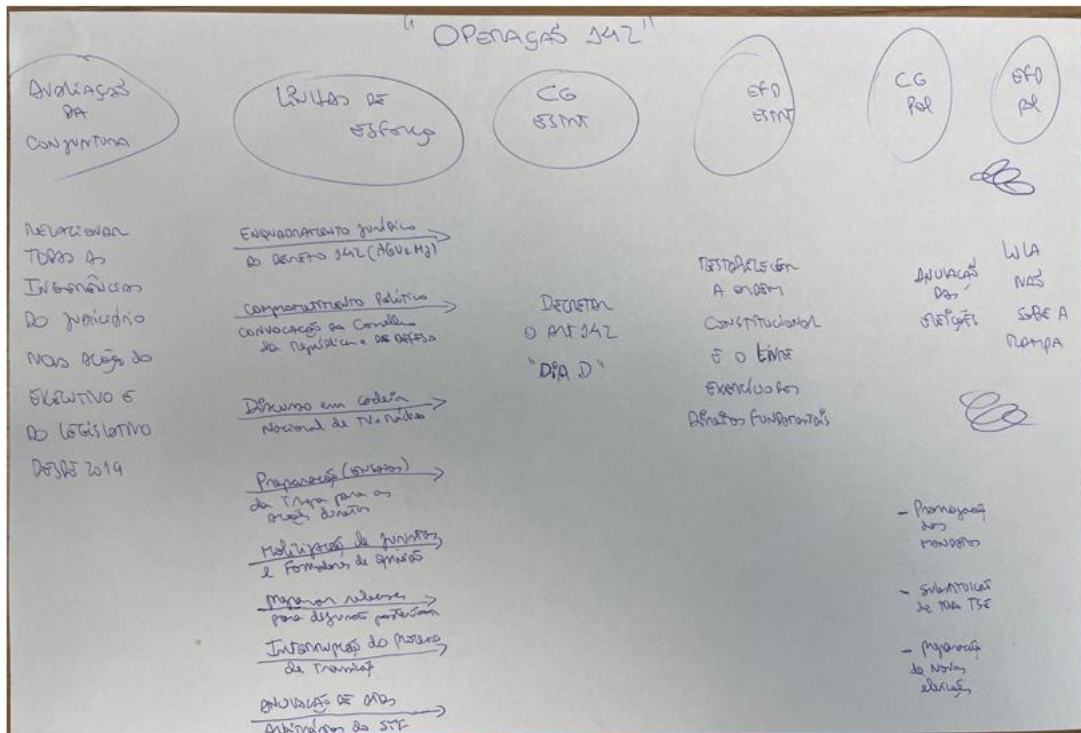 "OPERAÇÃO 142"
AVALIAÇÃO
DA
CONJUNTURA
LINHAS DE
ESFORÇO
CG
ESTRT
EFD
ESTRT
CG
POL
EFD
POL
RELACIONAR
TODAS AS
INGERÊNCIAS
DO JUDICIÁRIO
NAS AÇÕES DO
EXECUTIVO E
DO LEGISLATIVO
DESDE 2019
ENQUADRAMENTO JURÍDICO
DO DECRETO 142 (AGU e MJ)
COMPROMETIMENTO POLÍTICO
CONVOCAÇÃO do Conselho
da República e DE DEFESA
Discurso em cadeia
Nacional de TV e rádio
Preparação (ENSAIOS)
da Tropa para as
ações diretas
Mobilização de juristas
e Formadores de opinião
Preparar releases
para
Interrupção do processo
de Transição
ANULAÇÃO DE ATOS
Arbitrários do STF
DECRETAR
O ART 142
"DIA D"
RESTABELECER
A ORDEM
CONSTITUCIONAL
E O LIVRE
EXERCÍCIO DOS
Direitos FUNDAMENTAIS
ANULAÇÃO
DAS
ELEIÇÕES
- Prorrogação
dos
MANDATOS
- Substituição
de todo TSE
- preparação
de Novas
eleições
LULA
NÃO
SOBE A
RAMPA